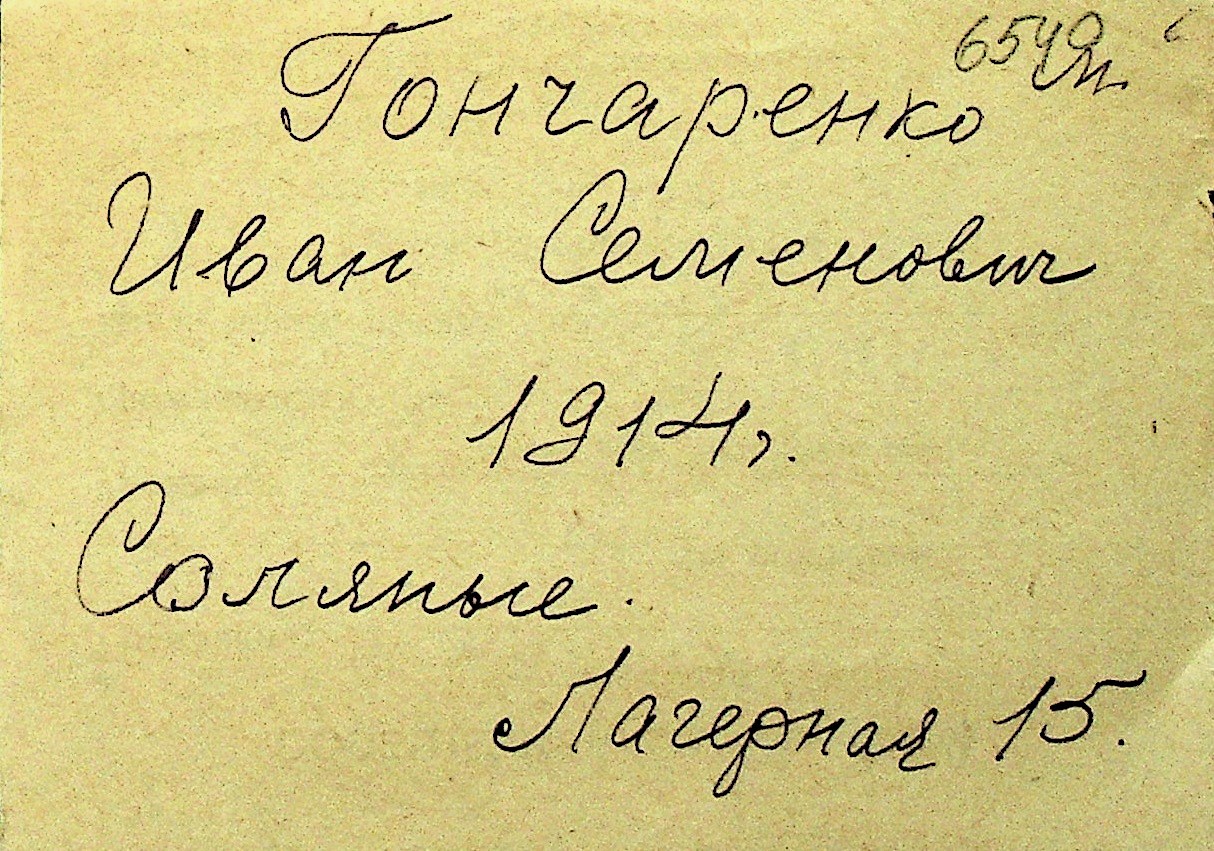 Гончаренко
Иван Семенович
1914г.
Соляные.
Лагерная 15.